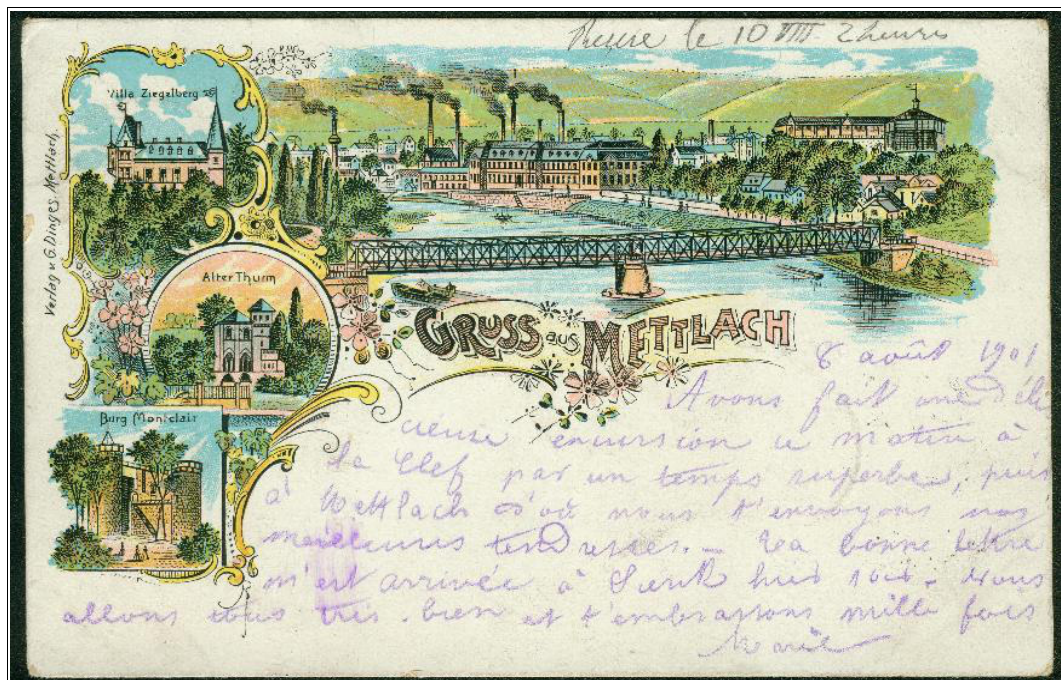 Reçue le 10 VIII 2 heures
Villa Ziegelberg
Verlag v. G. Dinges, Mettlach
Alter Thurm
GRUSS aus METTLACH
Burg Montclair
8 août 1901
Avons fait une déli
cieuse excursion ce matin à
la Clef par un temps superbe, puis
à Mettlach d'où nous t'envoyons nos
meilleures tendresses. – Ta bonne lettre
m'est arrivée à Sierk hier soir. Nous
allons tous très bien et t'embrassons mille fois
Marie